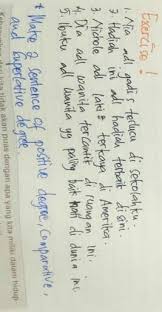 Exercise !
1. Nia adl gadis terlucu di sekolahku.
2. Hadiah ini adl hadiah terbaik disini.
3. Nichole adl laki2 terkaya di Amerika.
4. Dia adl wanita tercantik di ruangan ini.
5. Ibuku adl wanita yg paling baik hati di dunia ini.
* Make 2 sentence of positive degree, comparative,
and superlative degree
akan puas dengan apa yang kita miliki dalam hidup.